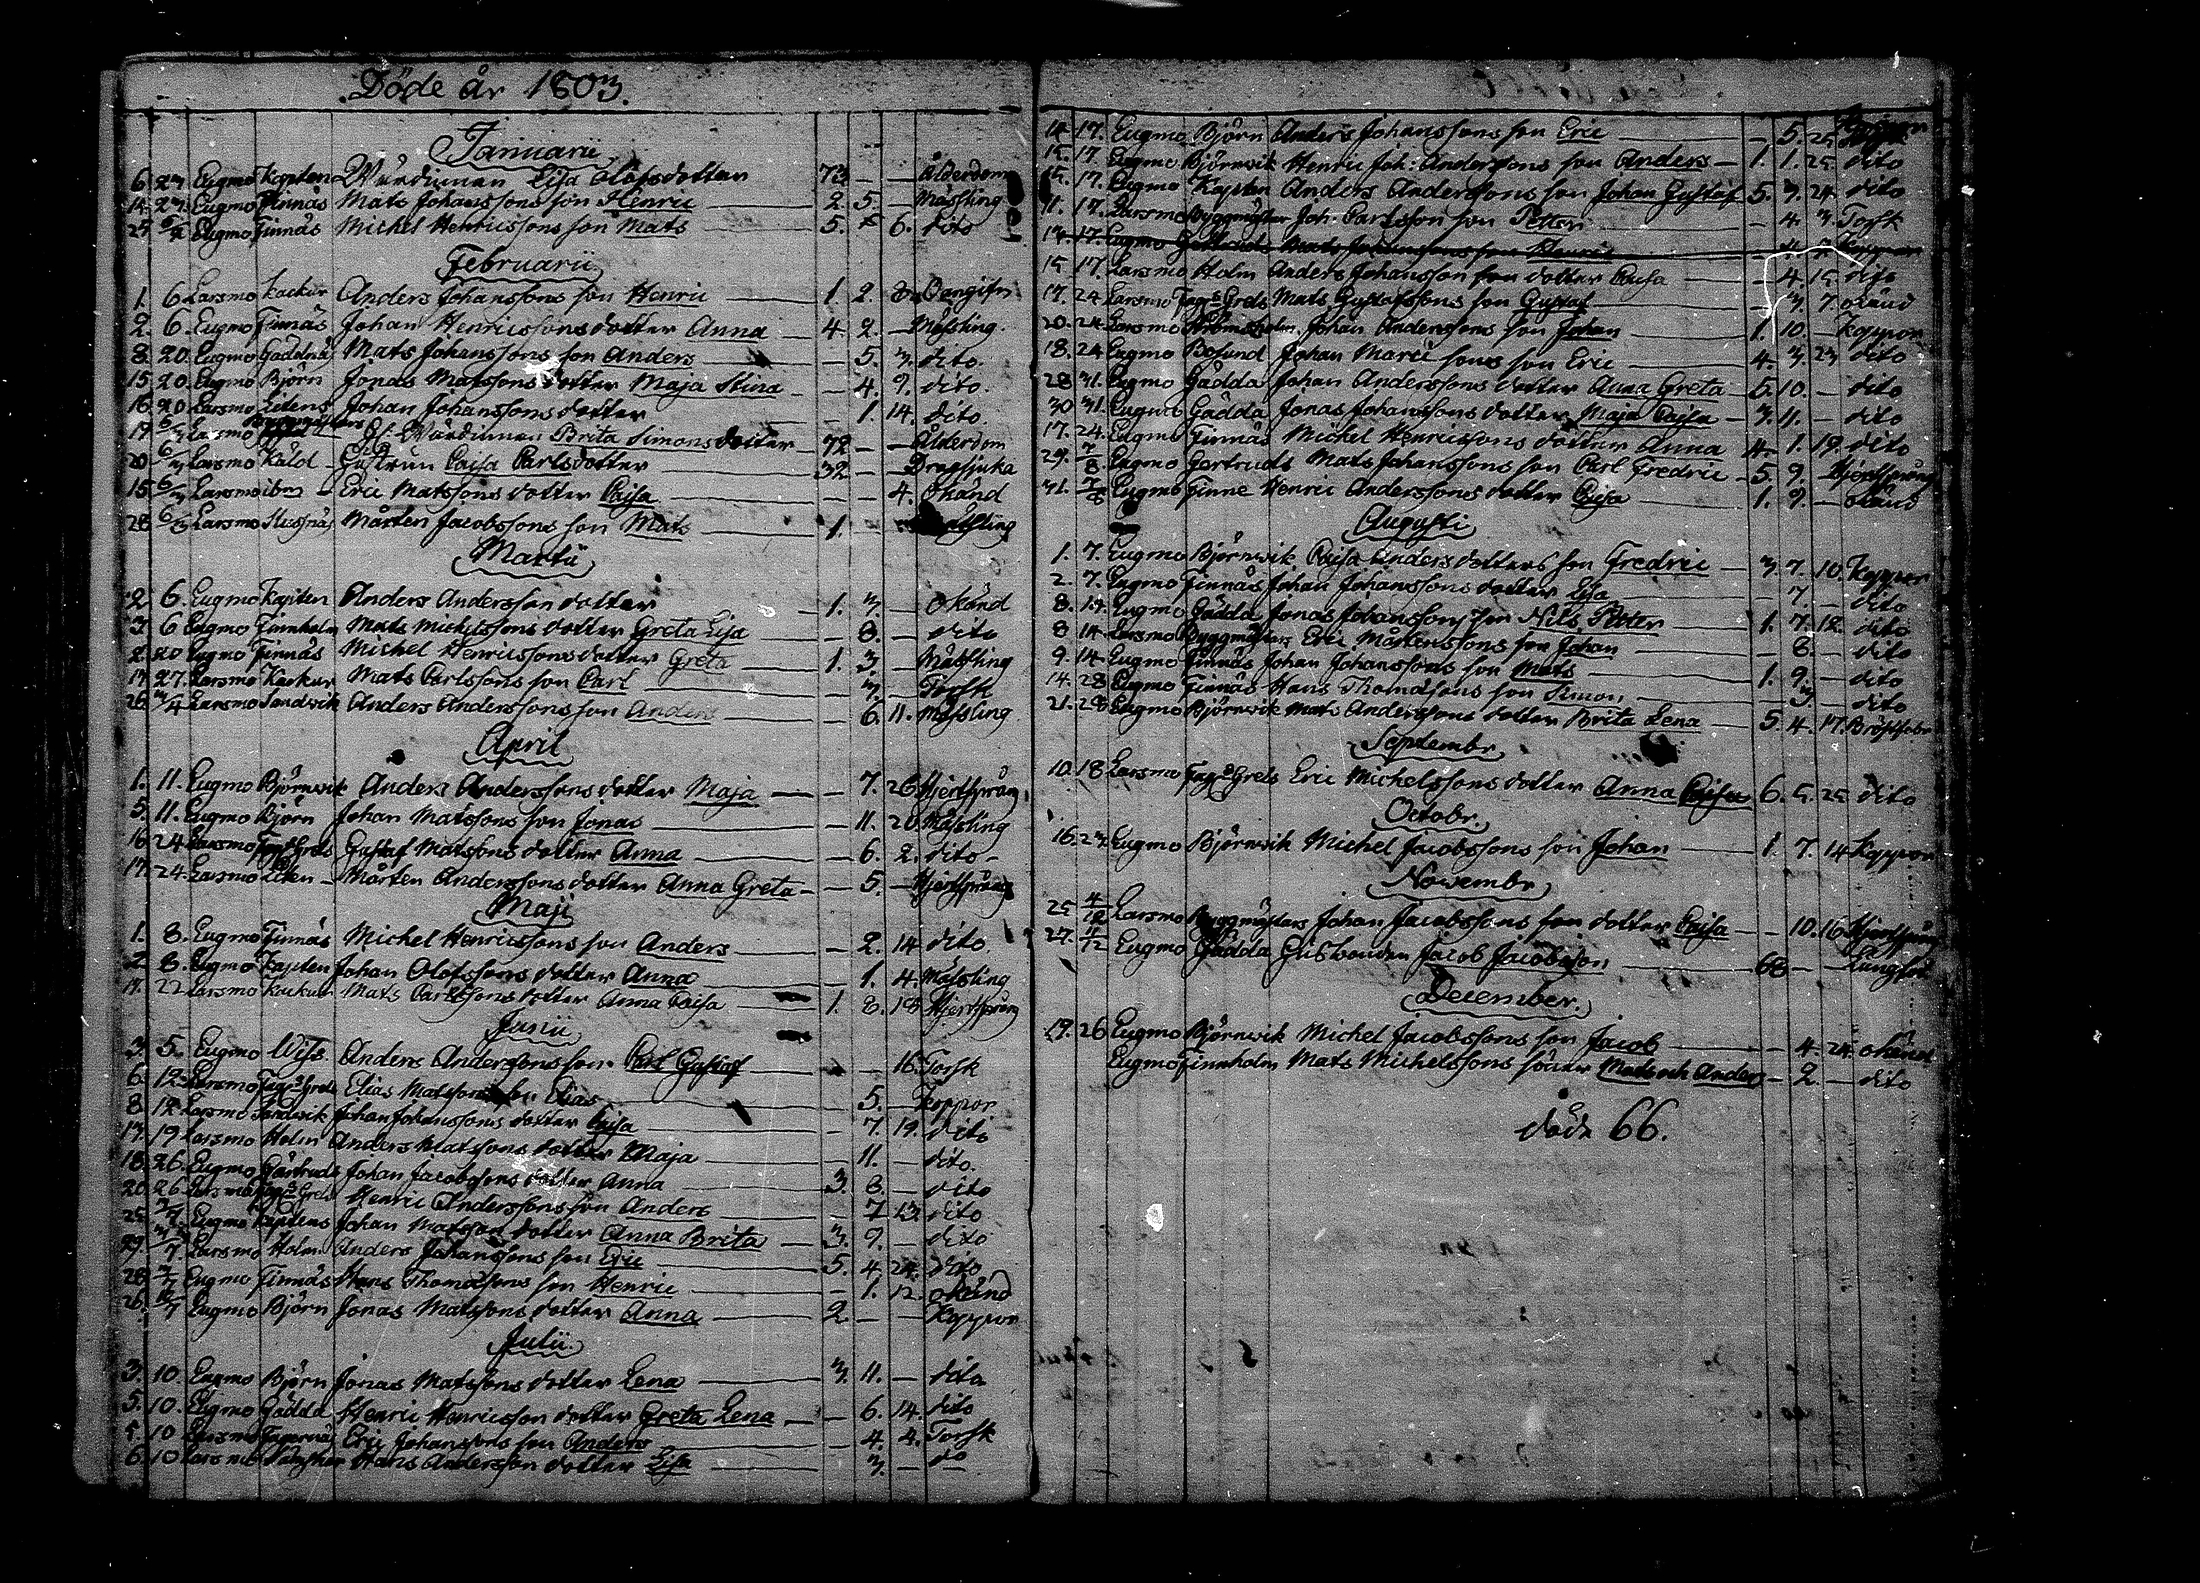 Döde år 1803.
Januarii
6. 23 Eugmo Kapiten Wärdinnan Lisa Olofsdotter 73 — — Ålderdom
14. 23. Eugmo Finnäs Mats Johanssons son Henric 2. 5. — Mässling
27 6/2 Eugmo Finnäs Michel Henricssons son Mats 5. 6. dito
Februarii
1. 6 Larsmo Kackur Anders Johanssons son Henric 1. 2.
2. 6. Eugmo Finnäs Johan Henricssons dotter Anna 4. 2. — Mässling.
8. 20. Eugmo Gäddnäs Mats Johanssons son Anders — 5. 3. dito.
15. 20. Eugmo Björn Jonas Matssons dotter Maja Stina — 4. 9. dito.
16. 20 Larsmo Litens Johan Johanssons dotter — 1. 14. dito
19 6/3 Larsmo Byggmästars Gl. Wärdinnan Brita Simonsdotter 72 — — Ålderdom
20 6/3 Larsmo Käld Gustrun Caisa Carlsdotter 32 — — Dragsjuka
15. 6/3 Larsmo ibm Eric Matssons dotter Caisa — — 4. Okänd
28 6/3 Larsmo Mårten Jacobssons son Mats 1. Mässling
Martii
2. 6. Eugmo Kapiten Anders Andersson dotter 1. 3. — Okänd
3. 6 Eugmo Finnholm Mats Michelssons dotter Greta Lisa — 8. — dito
2. 20 Eugmo Finnäs Michel Henricssons dotter Greta 1. 3. — Mässling
17. 27. Larsmo Kackur Mats Carlssons son Carl — 3. — Torsk
26. 3/4 Larsmo Sandwik Anders Anderssons son Anders — 6. 11. Mässling
April
1. 11. Eugmo Björnwik Anders Anderssons dotter Maja — 7. 26 Hjertsprång
5. 11. Eugmo Björn Johan Matssons son Jonas — 11. 20. Mässling
16 24 Larsmo Fag:s Grels Gustaf Matssons dotter Anna — 6. 2. dito
17. 24. Larsmo Liten Mårten Anderssons dotter Anna Greta — 5. — Hjertsprång
Maji
1. 8. Eugmo Finnäs Michel Henricssons son Anders — 2. 14. dito.
2 8. Eugmo Kapiten Johan Olofssons dotter Anna — 1. 4. Mässling
17. 22 Larsmo Kackur Mats Carlssons dotter Anna Caisa 1. 8. 18 Hjertsprång
Junii
3. 5. Eugmo Wiss Anders Anderssons son Carl Gustaf — 16. Torsk
6. 12. Larsmo Fag:s Grels Elias Matssons son Elias — 5. — Koppor
8. 12 Larsmo Sandwik Johan Johanssons dotter Caisa — 7. 19. dito
17. 19 Larsmo Holm Anders Matssons dotter Maja — 11. — dito.
18. 26. Eugmo Gärtruds Johan Jacobssons dotter Anna 3. 8. — dito
20. 26 Larsmo Fag:s Grels Henric Anderssons son Anders — 7 13. dito
25. 3/7 Eugmo Kapitens Johan Matsson dotter Anna Brita 3. 9. — dito
29. 3/7 Larsmo Holm Anders Johanssons son Eric 5. 4. 24. dito
28. 3/7 Eugmo Finnäs Hans Thomassons son Henric — 1. 12. Okänd
26. 10/7 Eugmo Björn Jonas Matssons dotter Anna 2. — — Koppor
Julii.
3. 10. Eugmo Björn Jonas Matssons dotter Lena 3. 11. — dito
5. 10. Eugmo Gädda Henric Henricsson dotter Greta Lena — 6. 14. dito
5. 10 Larsmo Fagernäs Eric Johanssons son Anders — 4. 4. Torsk
6. 10 Larsmo Hans Andersson dotter Lisa 3. — do
14. 17. Eugmo Björn Anders Johanssons son Eric — 5. 25
15. 17. Eugmo Björnwik Henric Joh: Anderssons son Anders 1. 1. 25. dito
15. 17. Eugmo Kapten Anders Anderssons son Johan Gustaf 5. 3. 24. dito
11. 17. Larsmo Byggmästar Joh: Carlsson son Petter — 4. 3 Torsk
17. 17. Eugmo Gertruds Mats Johanssons son Henric
15 17. Larsmo Holm Anders Johansson son dotter Caisa — 4. 15. dito
17. 24 Larsmo Fag:s Grels Mats Gustafssons son Gustaf 3. 7. Okänd
20. 24. Larsmo Strömsholm Johan Anderssons son Johan 1. 10. — Koppor
18. 24 Eugmo Bosund Johan Marti sons son Eric 4. 3. 23 dito
28 31. Eugmo Gädda Johan Anderssons dotter Anna Greta 5. 10. — dito
30 31. Eugmo Gädda Jonas Johanssons dotter Maja Caisa 3. 11. — dito
17. 24. Eugmo Finnäs Michel Henricssons dotter Anna 4. 1. 19. dito
29. 7/8. Eugmo Gertruds Mats Johanssons son Carl Fredric 5. 9. — Hjertsprång
31. 7/8 Eugmo Finne Henric Anderssons dotter Caisa 1. 9. — okänd
Augusti
1. 7. Eugmo Björnwik Caisa Andersdotters son Fredric 3. 7. 10. Koppor
2. 7. Eugmo Finnäs Johan Johanssons dotter Lisa — 7. — dito
8. 14. Eugmo Gädda Jonas Johanssons son Nils Petter 1. 7. 12. dito
8 14 Larsmo Byggmästars Eric Mårtenssons son Johan — 6. — dito
9. 14 Eugmo Finnäs Johan Johanssons son Mats 1. 9. — dito
14. 28 Eugmo Finnäs Hans Thomassons son Simon — 3 — dito
21. 28 Eugmo Björnwik Mats Anderssons dotter Brita Lena 5. 4. 17. Bröstfeber
Septembr.
10. 18 Larsmo Fag:s Grels Eric Michelssons dotter Anna Caisa 6. 5. 25. dito
Octobr.
16. 23. Eugmo Björnwik Michel Jacobssons son Johan 1. 7. 14 Koppor
Novembr.
25 4/12 Larsmo Byggmästars Johan Jacobssons son dotter Caisa — 10. 16. Hjertsprång
27. 4/12 Eugmo Gädda Husbonden Jacob Jacobsson 68 — — Lungsot
December.
19. 26 Eugmo Björnwik Michel Jacobssons son Jacob — 4. 24. okänd
Eugmo Finnholm Mats Michelssons söner Mats och Anders — 2. — dito
döde 66.